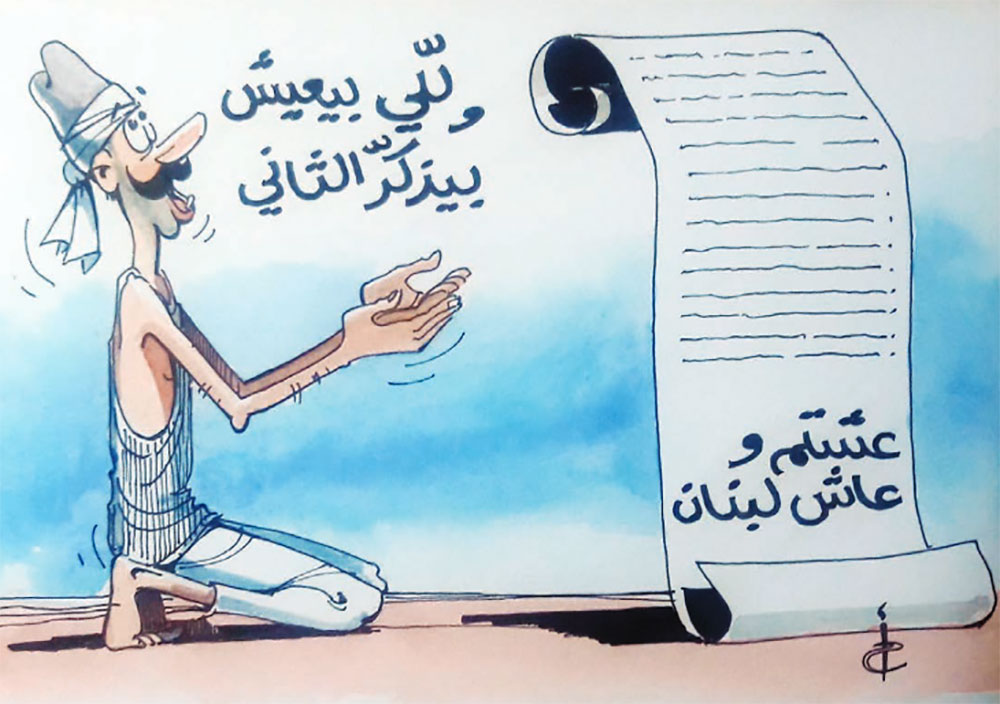 وللّي بيعيش
بيذكّر الثاني
عشتم و
عاش لبنان